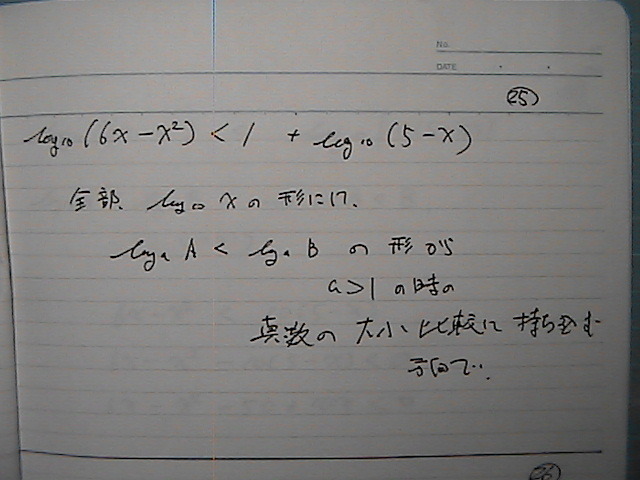 No.
DATE
25
log₁₀(6x-x²) < 1 + log₁₀(5-x)
全部、log₁₀ xの 形にして、
logₐ A < logₐ B の 形から
a>1 の時の
真数の 大小比較に 持ち込む
方向で…
26